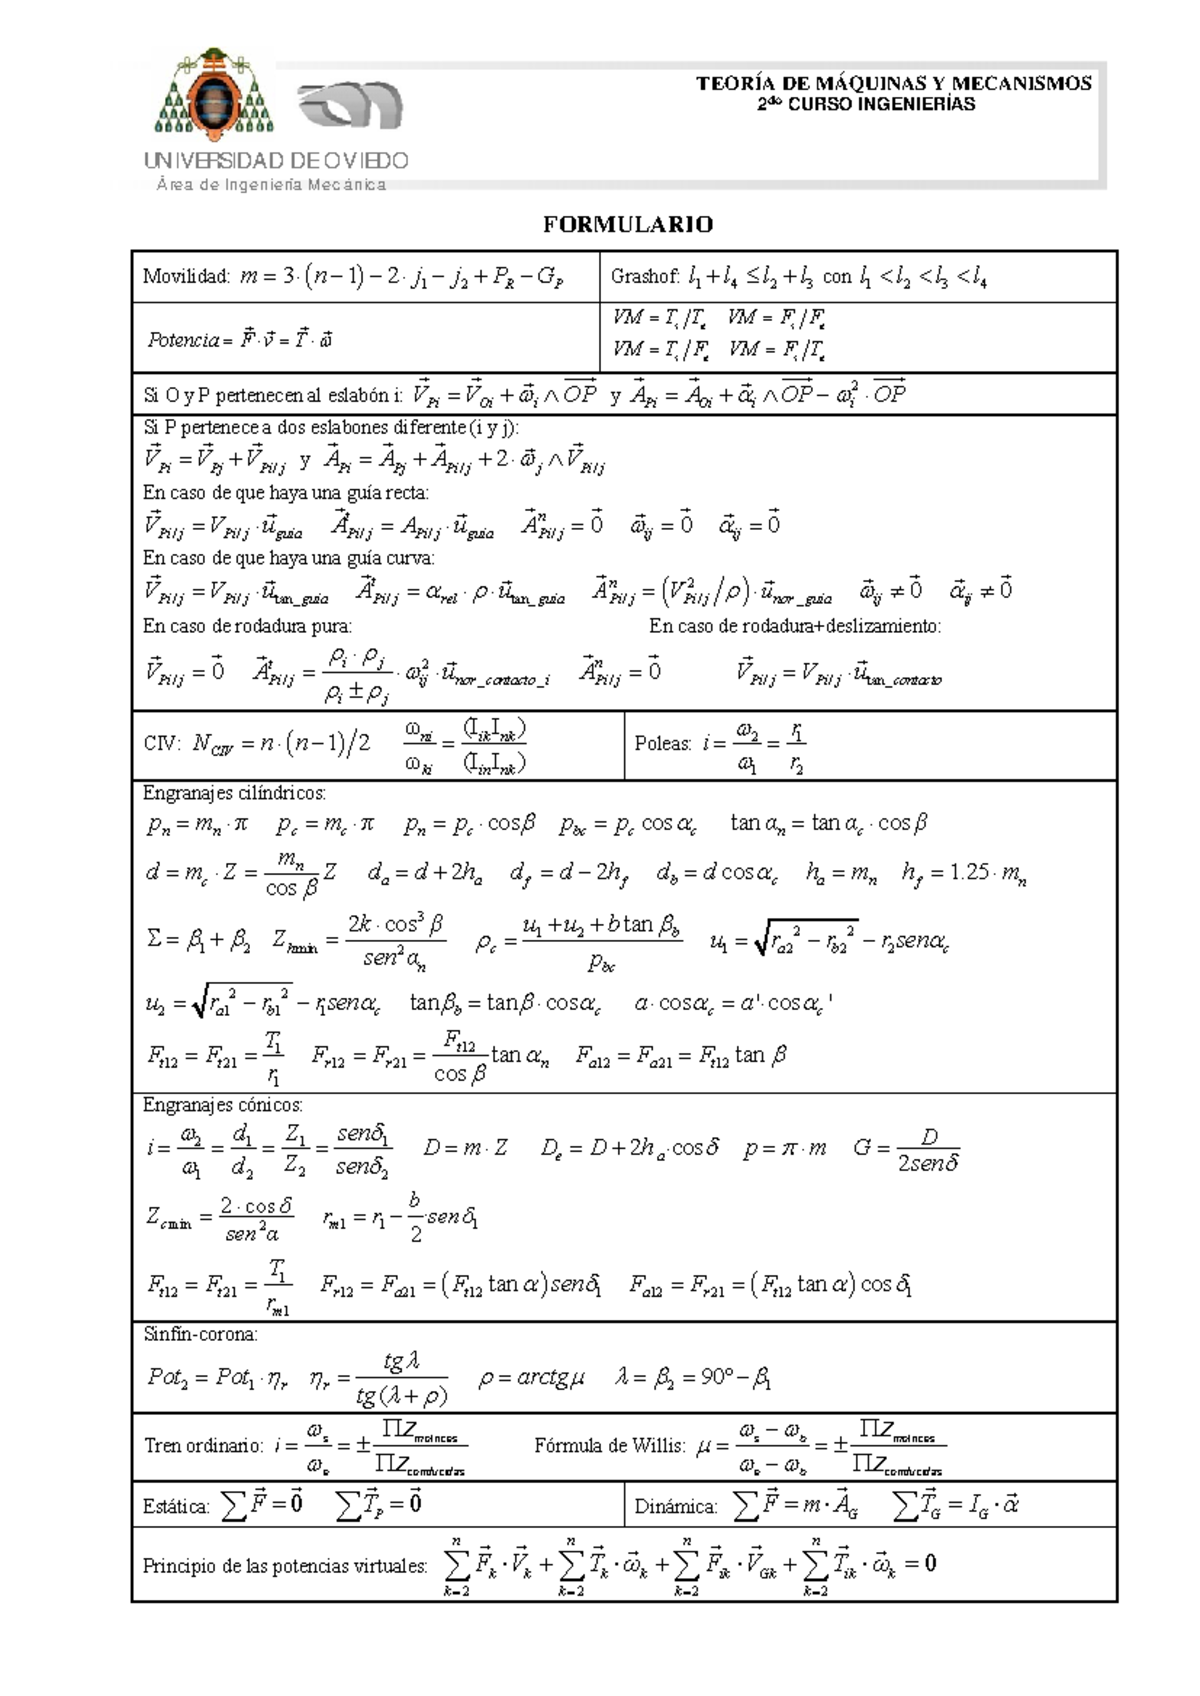 TEORÍA DE MÁQUINAS Y MECANISMOS
2do CURSO INGENIERÍAS
UNIVERSIDAD DE OVIEDO
Área de Ingeniería Mecánica
FORMULARIO
Movilidad: m = 3·(n−1)−2·j₁−j₂+P_R−G_P
Grashof: l₁+l₄ ≤ l₂+l₃ con l₁<l₂<l₃<l₄
Potencia = F⃗·v⃗ = T⃗·ω⃗
VM = T_s/T_e VM = F_s/F_e
VM = T_s/F_e VM = F_s/T_e
Si O y P pertenecen al eslabón i: V⃗_Pi = V⃗_Oi + ω⃗_i ∧ OP⃗ y A⃗_Pi = A⃗_Oi + α⃗_i ∧ OP⃗ − ω_i²·OP⃗
Si P pertenece a dos eslabones diferente (i y j):
V⃗_Pi = V⃗_Pj + V⃗_Pi/j y A⃗_Pi = A⃗_Pj + A⃗_Pi/j + 2·ω⃗_j ∧ V⃗_Pi/j
En caso de que haya una guía recta:
V⃗_Pi/j = V_Pi/j·u⃗_guia A⃗ᵗ_Pi/j = A_Pi/j·u⃗_guia A⃗ⁿ_Pi/j = 0⃗ ω⃗_ij = 0⃗ α⃗_ij = 0⃗
En caso de que haya una guía curva:
V⃗_Pi/j = V_Pi/j·u⃗_tan_guia A⃗ᵗ_Pi/j = α_rel·ρ·u⃗_tan_guia A⃗ⁿ_Pi/j = (V²_Pi/j/ρ)·u⃗_nor_guia ω⃗_ij ≠ 0⃗ α⃗_ij ≠ 0⃗
En caso de rodadura pura: En caso de rodadura+deslizamiento:
V⃗_Pi/j = 0⃗ A⃗ᵗ_Pi/j = (ρ_i·ρ_j)/(ρ_i±ρ_j)·ω²_ij·u⃗_nor_contacto_i A⃗ⁿ_Pi/j = 0⃗ V⃗_Pi/j = V_Pi/j·u⃗_tan_contacto
CIV: N_CIV = n·(n−1)/2 ω_ni/ω_ki = (I_ik I_nk)/(I_in I_nk)
Poleas: i = ω₂/ω₁ = r₁/r₂
Engranajes cilíndricos:
p_n = m_n·π p_c = m_c·π p_n = p_c·cosβ p_bc = p_c cosα_c tanα_n = tanα_c·cosβ
d = m_c·Z = (m_n/cosβ)Z d_a = d+2h_a d_f = d−2h_f d_b = d cosα_c h_a = m_n h_f = 1.25·m_n
Σ = β₁+β₂ Z_hmin = (2k·cos³β)/(sen²α_n) ρ_c = (u₁+u₂+b tanβ_b)/p_bc u₁ = √(r_a2²−r_b2²) − r₂senα_c
u₂ = √(r_a1²−r_b1²) − r₁senα_c tanβ_b = tanβ·cosα_c a·cosα_c = a'·cosα_c'
F_t12 = F_t21 = T₁/r₁ F_r12 = F_r21 = (F_t12/cosβ) tanα_n F_a12 = F_a21 = F_t12 tanβ
Engranajes cónicos:
i = ω₂/ω₁ = d₁/d₂ = Z₁/Z₂ = senδ₁/senδ₂ D = m·Z D_e = D+2h_a·cosδ p = π·m G = D/(2senδ)
Z_cmin = (2·cosδ)/(sen²α) r_m1 = r₁ − (b/2)·senδ₁
F_t12 = F_t21 = T₁/r_m1 F_r12 = F_a21 = (F_t12 tanα)senδ₁ F_a12 = F_r21 = (F_t12 tanα)cosδ₁
Sinfín-corona:
Pot₂ = Pot₁·η_r η_r = tgλ/tg(λ+ρ) ρ = arctgμ λ = β₂ = 90º−β₁
Tren ordinario: i = ω_s/ω_e = ± ΠZ_motrices/ΠZ_conducidas Fórmula de Willis: μ = (ω_s−ω_b)/(ω_e−ω_b) = ± ΠZ_motrices/ΠZ_conducidas
Estática: ∑F⃗ = 0⃗ ∑T⃗_P = 0⃗
Dinámica: ∑F⃗ = m·A⃗_G ∑T⃗_G = I_G·α⃗
Principio de las potencias virtuales: ∑ⁿ_{k=2} F⃗_k·V⃗_k + ∑ⁿ_{k=2} T⃗_k·ω⃗_k + ∑ⁿ_{k=2} F⃗_ik·V⃗_Gk + ∑ⁿ_{k=2} T⃗_ik·ω⃗_k = 0